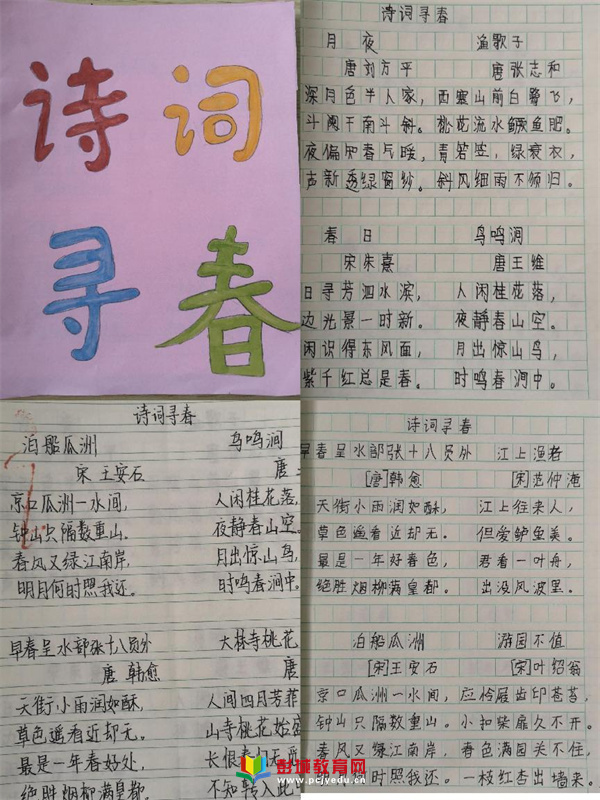 诗词
寻春
诗词寻春
月夜
唐刘方平
深月色半人家，
斗阑干南斗斜。
夜偏知春气暖，
声新透绿窗纱。
渔歌子
唐张志和
西塞山前白鹭飞，
桃花流水鳜鱼肥。
青箬笠，绿蓑衣，
斜风细雨不须归。
春日
宋朱熹
日寻芳泗水滨，
边光景一时新。
闲识得东风面，
紫千红总是春。
鸟鸣涧
唐王维
人闲桂花落，
夜静春山空。
月出惊山鸟，
时鸣春涧中。
诗词寻春
泊船瓜洲
宋 王安石
京口瓜洲一水间，
钟山只隔数重山。
春风又绿江南岸，
明月何时照我还。
鸟鸣涧
唐
人闲桂花落，
夜静春山空。
月出惊山鸟，
时鸣春涧中。
早春呈水部张十八员外
唐 韩愈
天街小雨润如酥，
草色遥看近却无。
最是一年春好处，
绝胜烟柳满皇都。
大林寺桃花
唐
人间四月芳菲
山寺桃花始盛
长恨春归无
不知转入此
诗词寻春
早春呈水部张十八员外
[唐]韩愈
天街小雨润如酥，
草色遥看近却无。
最是一年好春色，
绝胜烟柳满皇都。
江上渔者
[宋]范仲淹
江上往来人，
但爱鲈鱼美。
君看一叶舟，
出没风波里。
泊船瓜洲
[宋]王安石
京口瓜洲一水间，
钟山只隔数重山。
春风又绿江南岸，
何时照我还。
游园不值
[宋]叶绍翁
应怜屐齿印苍苔，
小扣柴扉久不开。
春色满园关不住，
一枝红杏出墙来。
彭城教育网
www.pcjyedu.cn